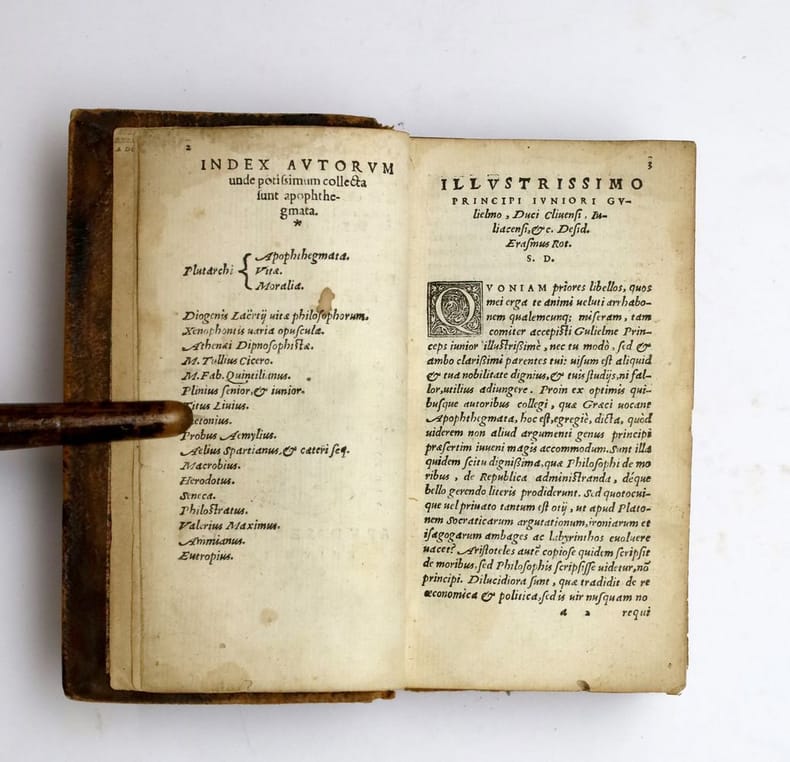 2
INDEX AVTORVM
unde potissimum collecta
sunt apophthe-
gmata.
*
Plutarchi { Apophthegmata.
Vitæ.
Moralia.
Diogenis Laërtij uitæ philosophorum.
Xenophontis uaria opuscula.
Athenæi Dipnosophistæ.
M. Tullius Cicero.
M. Fab. Quintilianus.
Plinius senior, & iunior.
Titus Liuius.
etonius.
Probus Aemylius.
Aelius Spartianus, & cæteri seq.
Macrobius.
Herodotus.
Seneca.
Philostratus.
Valerius Maximus.
Ammianus.
Eutropius.
3
ILLVSTRISSIMO
PRINCIPI IVNIORI GV-
lielmo, Duci Cliuensi, Iu-
liacensi, &c. Desid.
Erasmus Rot.
S. D.
QVONIAM priores libellos, quos
mei erga te animi ueluti arrhabo-
nem qualemcunq; miseram, tam
comiter accepisti Gulielme Prin-
ceps iunior illustrissimè, nec tu modò, sed &
ambo clarissimi parentes tui: uisum est aliquid
& tua nobilitate dignius, & tuis studijs, ni fal-
lor, utilius adiungere. Proin ex optimis qui-
busque autoribus collegi, quæ Græci uocant
Apophthegmata, hoc est, egregiè, dicta, quòd
uiderem non aliud argumenti genus principi
præsertim iuueni magis accommodum. Sunt illa
quidem scitu dignissima, quæ Philosophi de mo
ribus, de Republica administranda, déque
bello gerendo literis prodiderunt. Sed quotocui-
que uel priuato tantum est otij, ut apud Plato-
nem Socraticarum argutationum, ironiarum et
isagogarum ambages ac labyrinthos euoluere
uacet? Aristoteles autē copiose quidem scripsit
de moribus, sed Philosophis scripsisse uidetur, nō
principi. Dilucidiora sunt, quæ tradidit de re
œconomica & politica, sed is uir nusquam no
a 2 requi